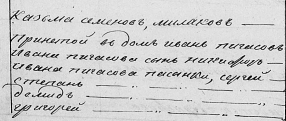 Казома семеновъ, милаковъ
Принятой въ домъ иванъ пичасовъ
Ивана пичасова сынъ никифоръ
Ивана пичасова пасынки, сергей
степанъ " " "
демидъ " " "
григорей " " "